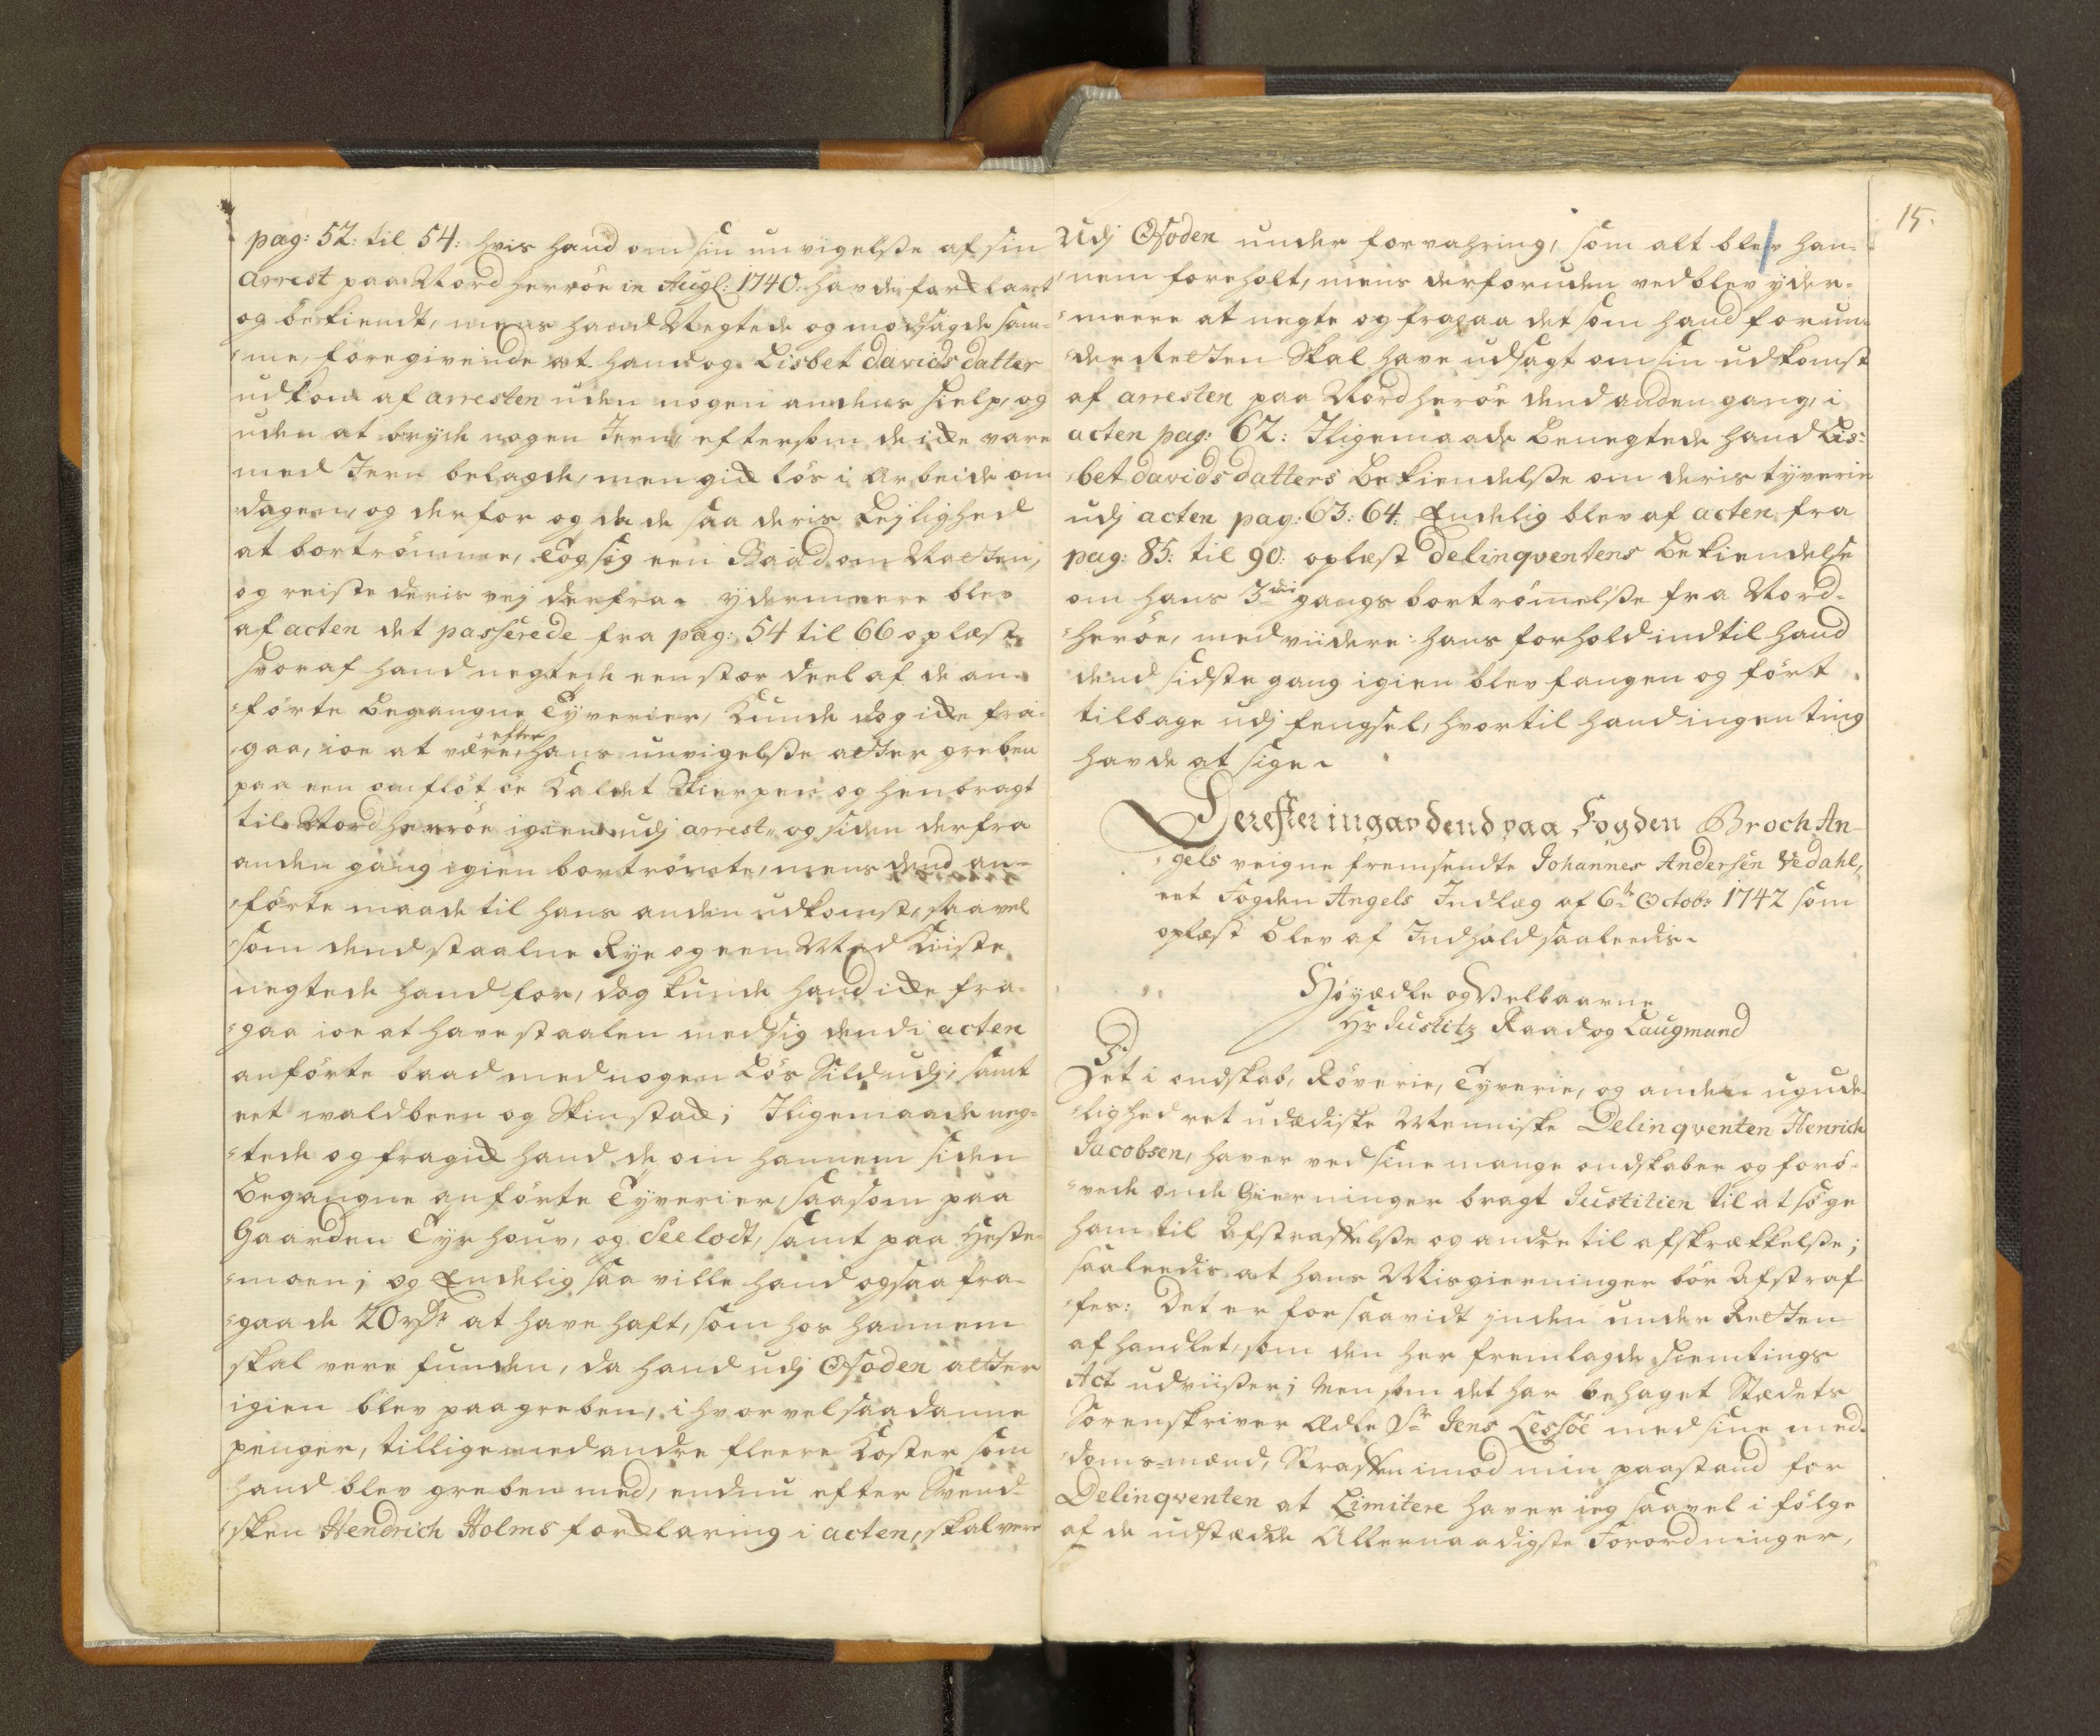 pag: 52: til 54: hvis hand om sin unvigelße af sin
arrest paa Nordherröe in Augl: 1740: havde forklart
og bekiendt, mens hand Negtede og modsagde sam-
-me, foregivende at hand og Lisbet davids datter
udkom af arresten uden nogen andens hielp, og
uden at bryde nogen Jern, eftersom de icke vare
med Jern belagde, men gick lös i Arbeide om
dagen, og derfor og da de saa deris Lejlighed
at bortrömme, tog sig een Baad om Natten,
og reiste deris vej derfra. ydermeere blev
af acten det passerede fra pag: 54 til 66 oplæst
hvoraf hand negtede een stor deel af de an-
-förte begangne Tyverier, Kunde dog icke fra-
-gaa, ioe at være efter hans unvigelße atter greben
paa een omflöt öe Kaldet Skierpen og henbragt
til Nordherröe igien udj arrest, og siden derfra
anden gang igien bortrömte, mens dend an-
-förte maade til hans anden udkomst, saavel
som dend staalne Rye og een Mad Kiiste
negtede hand for, dog kunde hand icke fra-
-gaa ioe at have staalen med sig dend i acten
anförte baad med nogen Lös Sild udj, samt
eet waldbeen og Skinstack; Iligemaade neg-
-tede og fragick hand de om hannem siden
begangne anförte Tyverier, saasom paa
Gaarden Tyrhouv, og Seelodt, samt paa Heste-
-moen; og Endelig saa ville hand ogsaa fra-
-gaa de 20 rdr at have haft, som hos hannem
skal vere funden, da hand udj Ofoden atter
igien blev paagreben, ihvorvel saadanne
penger, tillige med andre fleere Koster som
hand blev greben med, endnu efter Svend-
-sken Hendrich Holms forklaring i acten, skal vere
15.
Udj Ofoden under forvahring, som alt blev han-
-nem foreholt, mens derforuden vedblev yder-
-meere at negte og fragaa det som hand for un-
-derretten Skal have udsagt om sin udkomst
af arresten paa Nordheröe dend anden gang, i
acten pag: 62: Iligemaade benegtede hand Lis-
-bet davids datters bekiendelße om deris tyverie
udj acten pag: 63: 64: Endelig blev af acten fra
pag: 85: til 90: oplæst Delinqventens bekiendelse
om hans 3die gangs bortrömelße fra Nord-
-heröe, med viidere hans forhold indtil hand
dend sidste gang igien blev fangen og fört
tilbage udj fengsel, hvortil hand ingen ting
havde at sige.
Derefter ingav dend paa Fogden Broch An-
-gels veigne fremsendte Johannes Andersen Vedahl,
eet Fogden Angels Indlæg af 6te Octobr 1742 som
oplæst blev af Indhold saaleedis.
Höyædle og Velbaarne
Hr Justitz Raad og Laugmand
Det i ondskab, Röverie, Tyverie, og anden ugude-
-lighed ret udædiske Menniske Delinqventen Henrich
Jacobsen, haver ved sine mange ondskaber og forö-
-vede onde Gierninger bragt Justitien til at söge
ham til Afstraffelße og andre til afskrækkelße;
saaleedis at hans Misgierninger bör Afstraf-
-fes: Det er for saavidt inden under Retten
afhandlet, som den her fremlagde Hiemtings
Act udviißer; Men som det har behaget Stædets
Sorenskriver Ædle Sr Jens Lessöe med sine med-
-doms-mænd, Straffen imod min paastand for
Delinqventen at Limitere haver ieg saavel i fölge
af de udstædde Allernaadigste Forordninger,